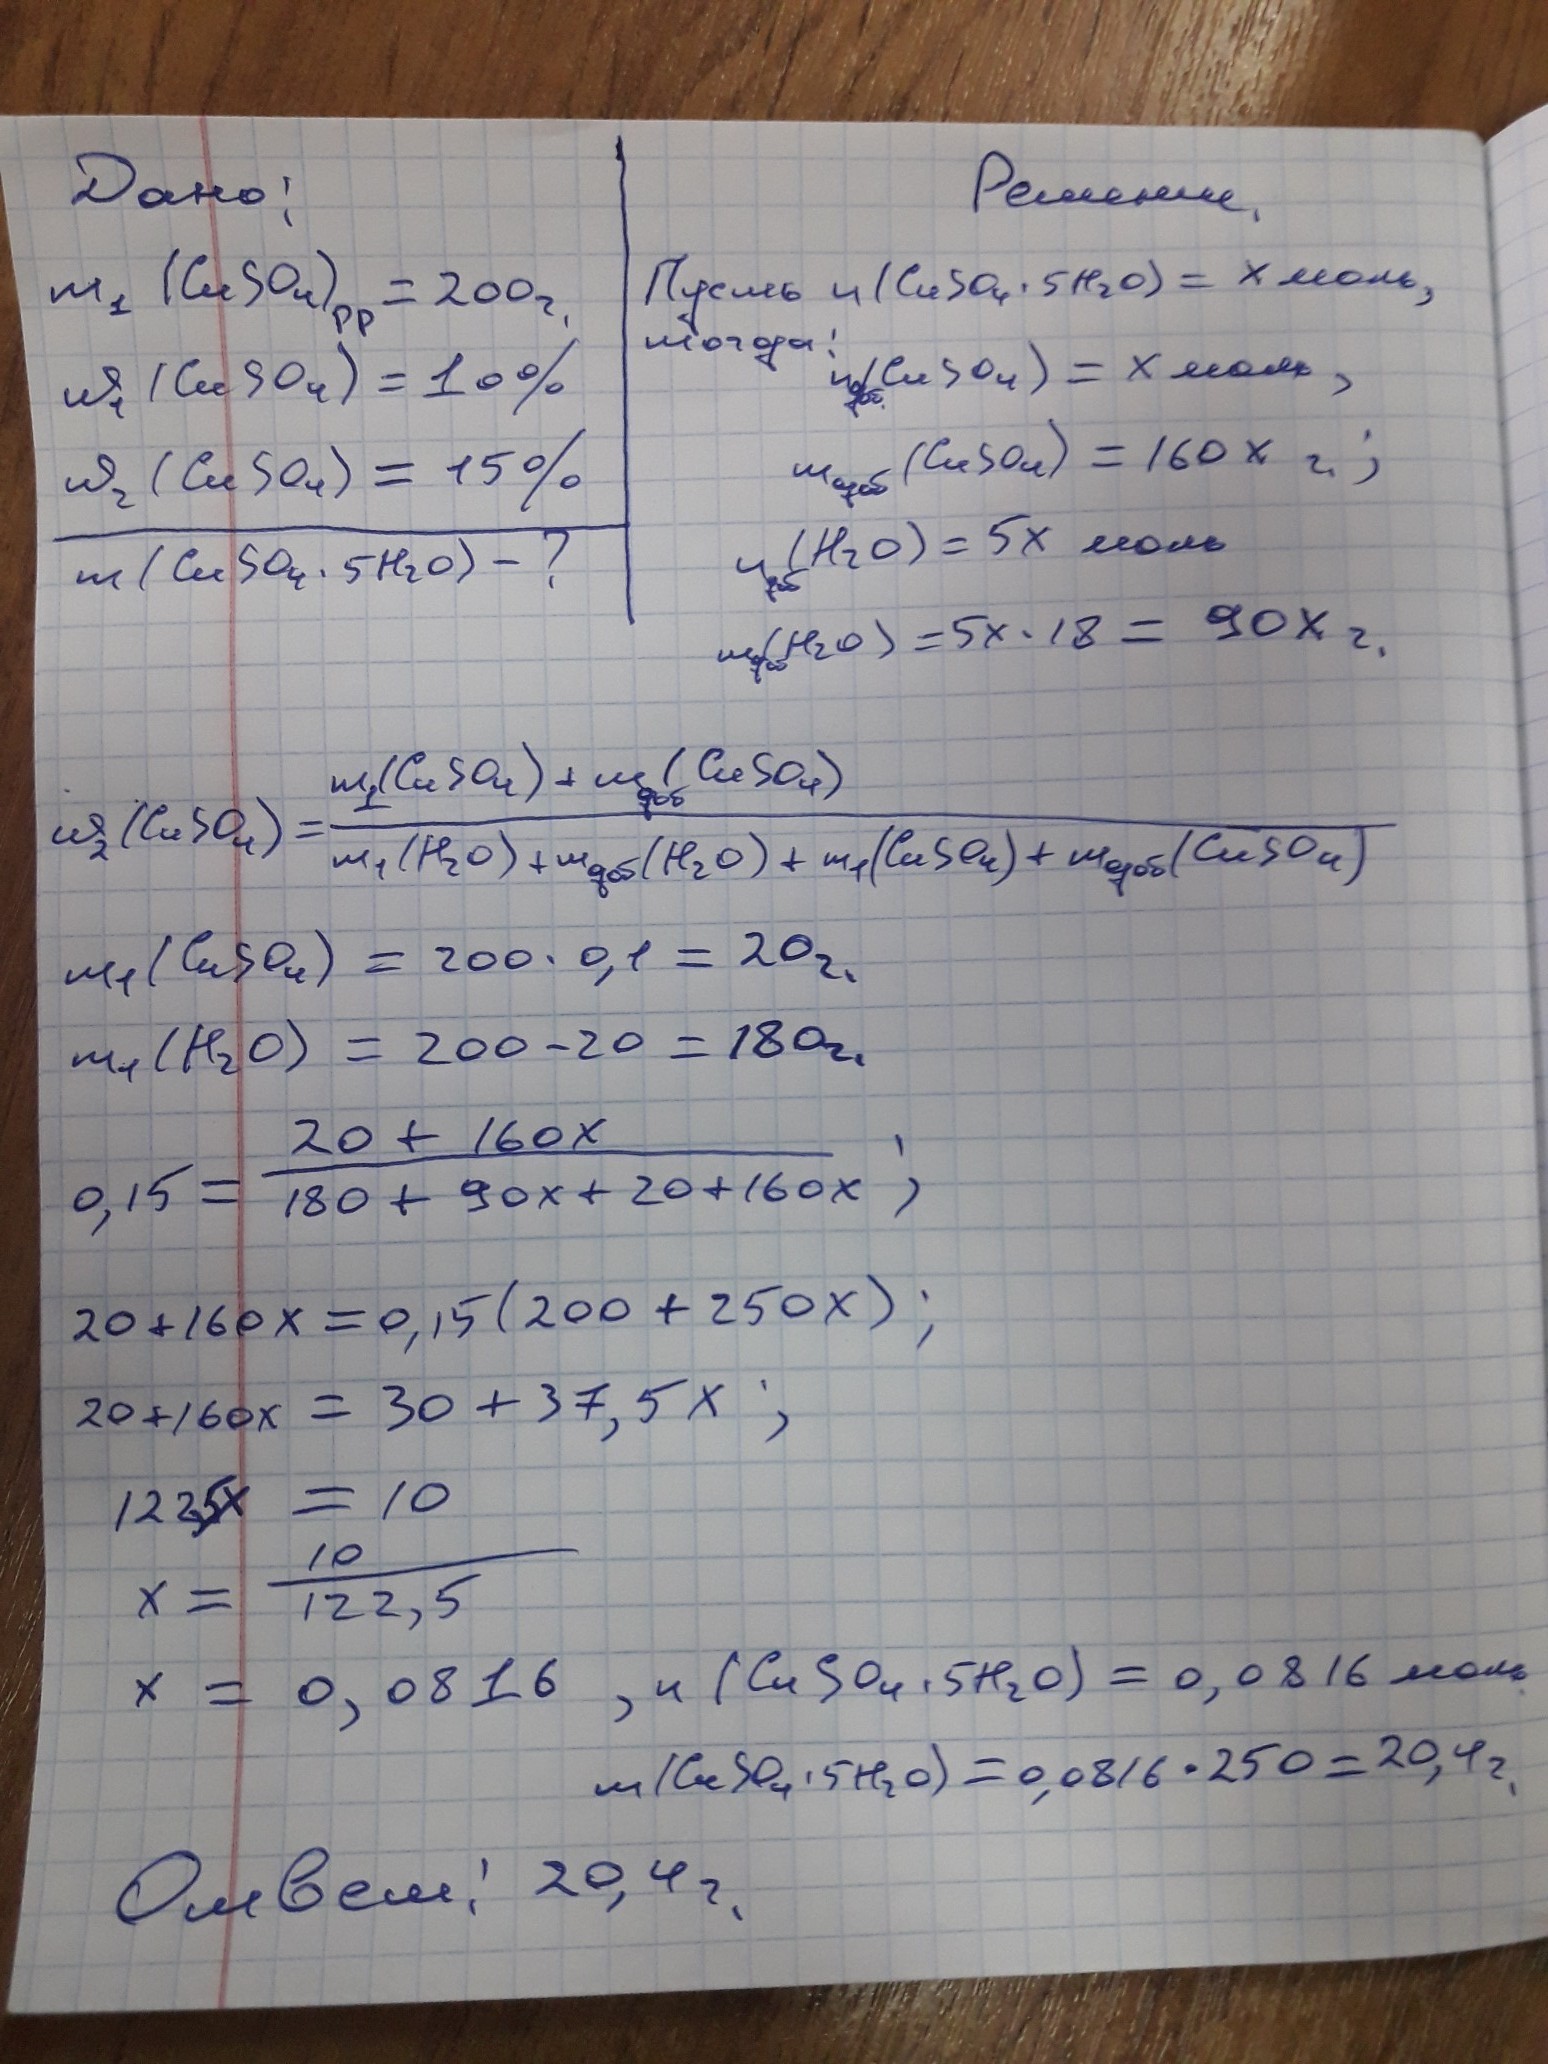 Дано:
m₁ (CuSO₄)рр = 200г.
ω₁ (CuSO₄) = 10%
ω₂ (CuSO₄) = 15%
m (CuSO₄·5H₂O) - ?
Решение.
Пусть n (CuSO₄·5H₂O) = x моль,
тогда:
nдоб(CuSO₄) = x моль,
mдоб(CuSO₄) = 160x г.;
nдоб(H₂O) = 5x моль
mдоб(H₂O) = 5x·18 = 90x г.
ω₂(CuSO₄) = m₁(CuSO₄) + mдоб(CuSO₄) / m₁(H₂O) + mдоб(H₂O) + m₁(CuSO₄) + mдоб(CuSO₄)
m₁(CuSO₄) = 200·0,1 = 20г.
m₁(H₂O) = 200-20 = 180г.
0,15 = 20 + 160x / 180 + 90x + 20 + 160x ;
20+160x = 0,15(200 + 250x);
20+160x = 30 + 37,5x ;
122,5x = 10
x = 10 / 122,5
x = 0,0816 , n (CuSO₄·5H₂O) = 0,0816 моль
m(CuSO₄·5H₂O) = 0,0816·250 = 20,4г.
Ответ: 20,4г.